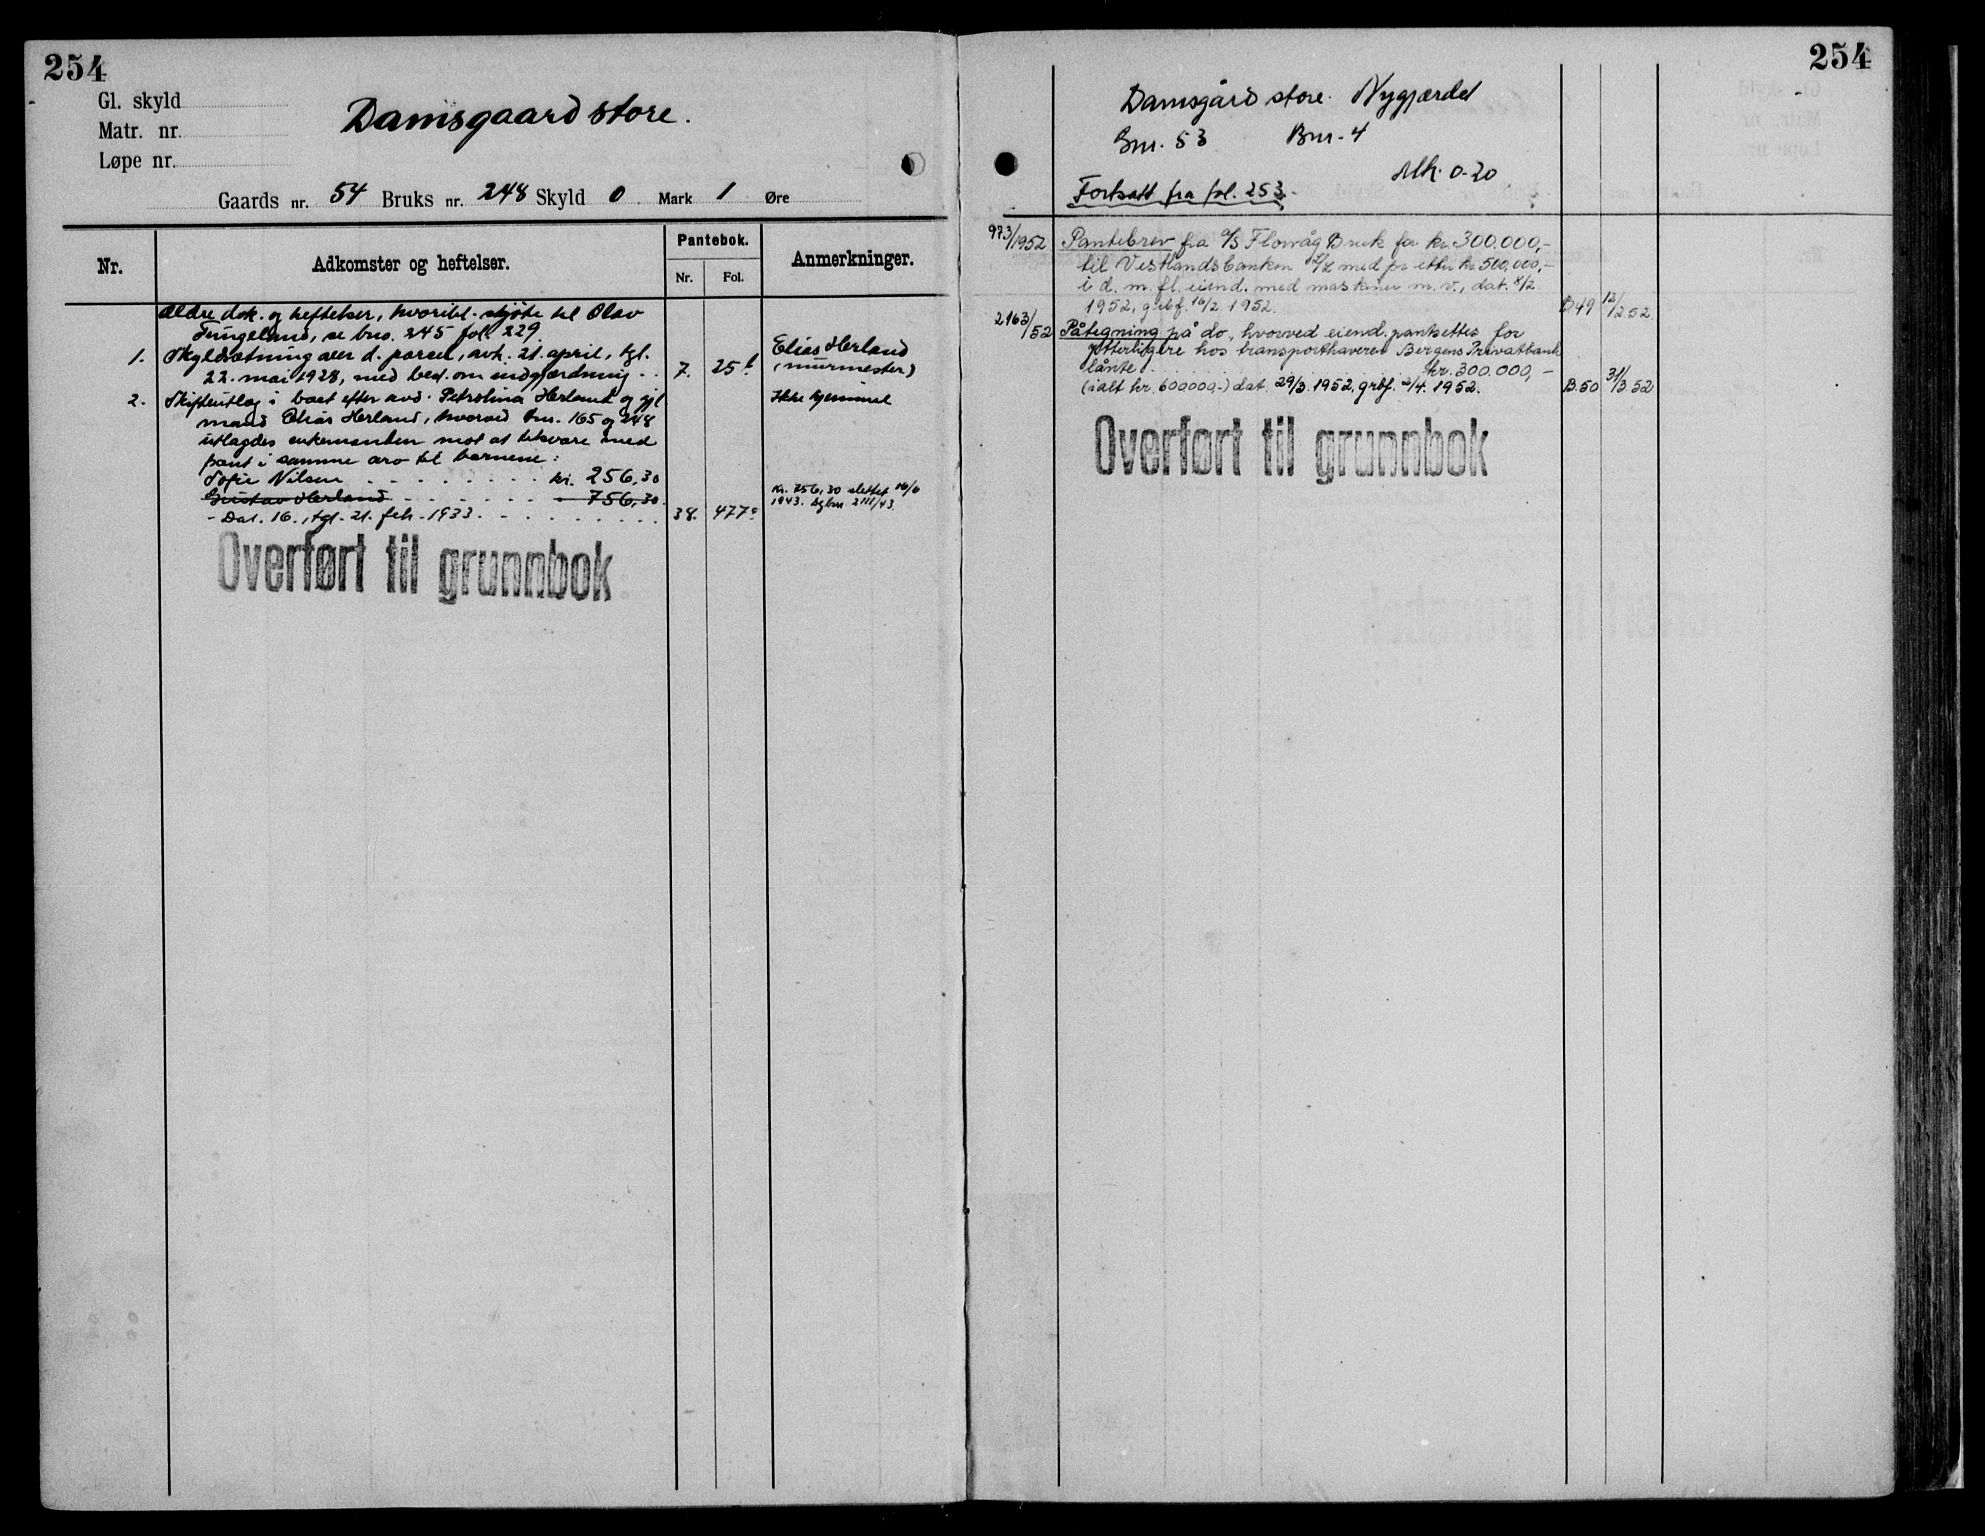 254
Gl. skyld
Matr. nr.
Løpe nr.
Damsgaard store.
Gaards nr. 54 Bruks nr. 248 Skyld 0 Mark 1 Øre
Nr.
Adkomster og heftelser.
Pantebok.
Nr. Fol.
Anmerkninger.
Ældre dok. og heftelser, hvoribl. skjøte til Olav
Tungeland, se bno. 245 fol 229.
1. Skyldsætning over d. parsel, avh. 21. april, tgl.
22. mai 1928, med best. om indgjærdning . . 7. 25 b
Elias Herland
(murmester)
2. Skifteutlæg i boet efter avd. Petrolina Herland og gjl
mand Elias Herland, hvorved bnr. 165 og 248
utlagdes enkemanden mot at tilsvare med
pant i samme arv til barnene:
Sofie Nilsen . . . . . . . . . kr. 256,30
Gustav Herland - - - - - - - 756,30
- Dat. 16., tgl. 21. feb. 1933. - . . . . . . . . 38. 477a
Ikke hjemmel
Kr. 756,30 slettet 16/6
1943. Dgbnr. 2111/43.
Overført til grunnbok
254
Damsgård store. Nygjærdet
Gnr. 53 Bnr. 4
Mk. 0-20
Fortsatt fra fol. 253.
973/1952 Pantebrev fra A/S Florvåg Bruk for kr. 300.000,-
til Vestlandsbanken A/L med pr. etter kr. 500.000,-
i d. m. fl. eiend. med maskiner m.v., dat. 8/2
1952, grbf. 16/2 1952. B 49 12/2 52
2163/52 Påtegning på do., hvorved eiend. pantsettes for
ytterligere hos transporthaveren Bergens Privatbank
lånte . . . . . . . . . . kr. 300.000,-
(ialt kr. 600000,-) dat. 29/3. 1952, grbf. 2/4. 1952. B 50 31/3 52
Overført til grunnbok